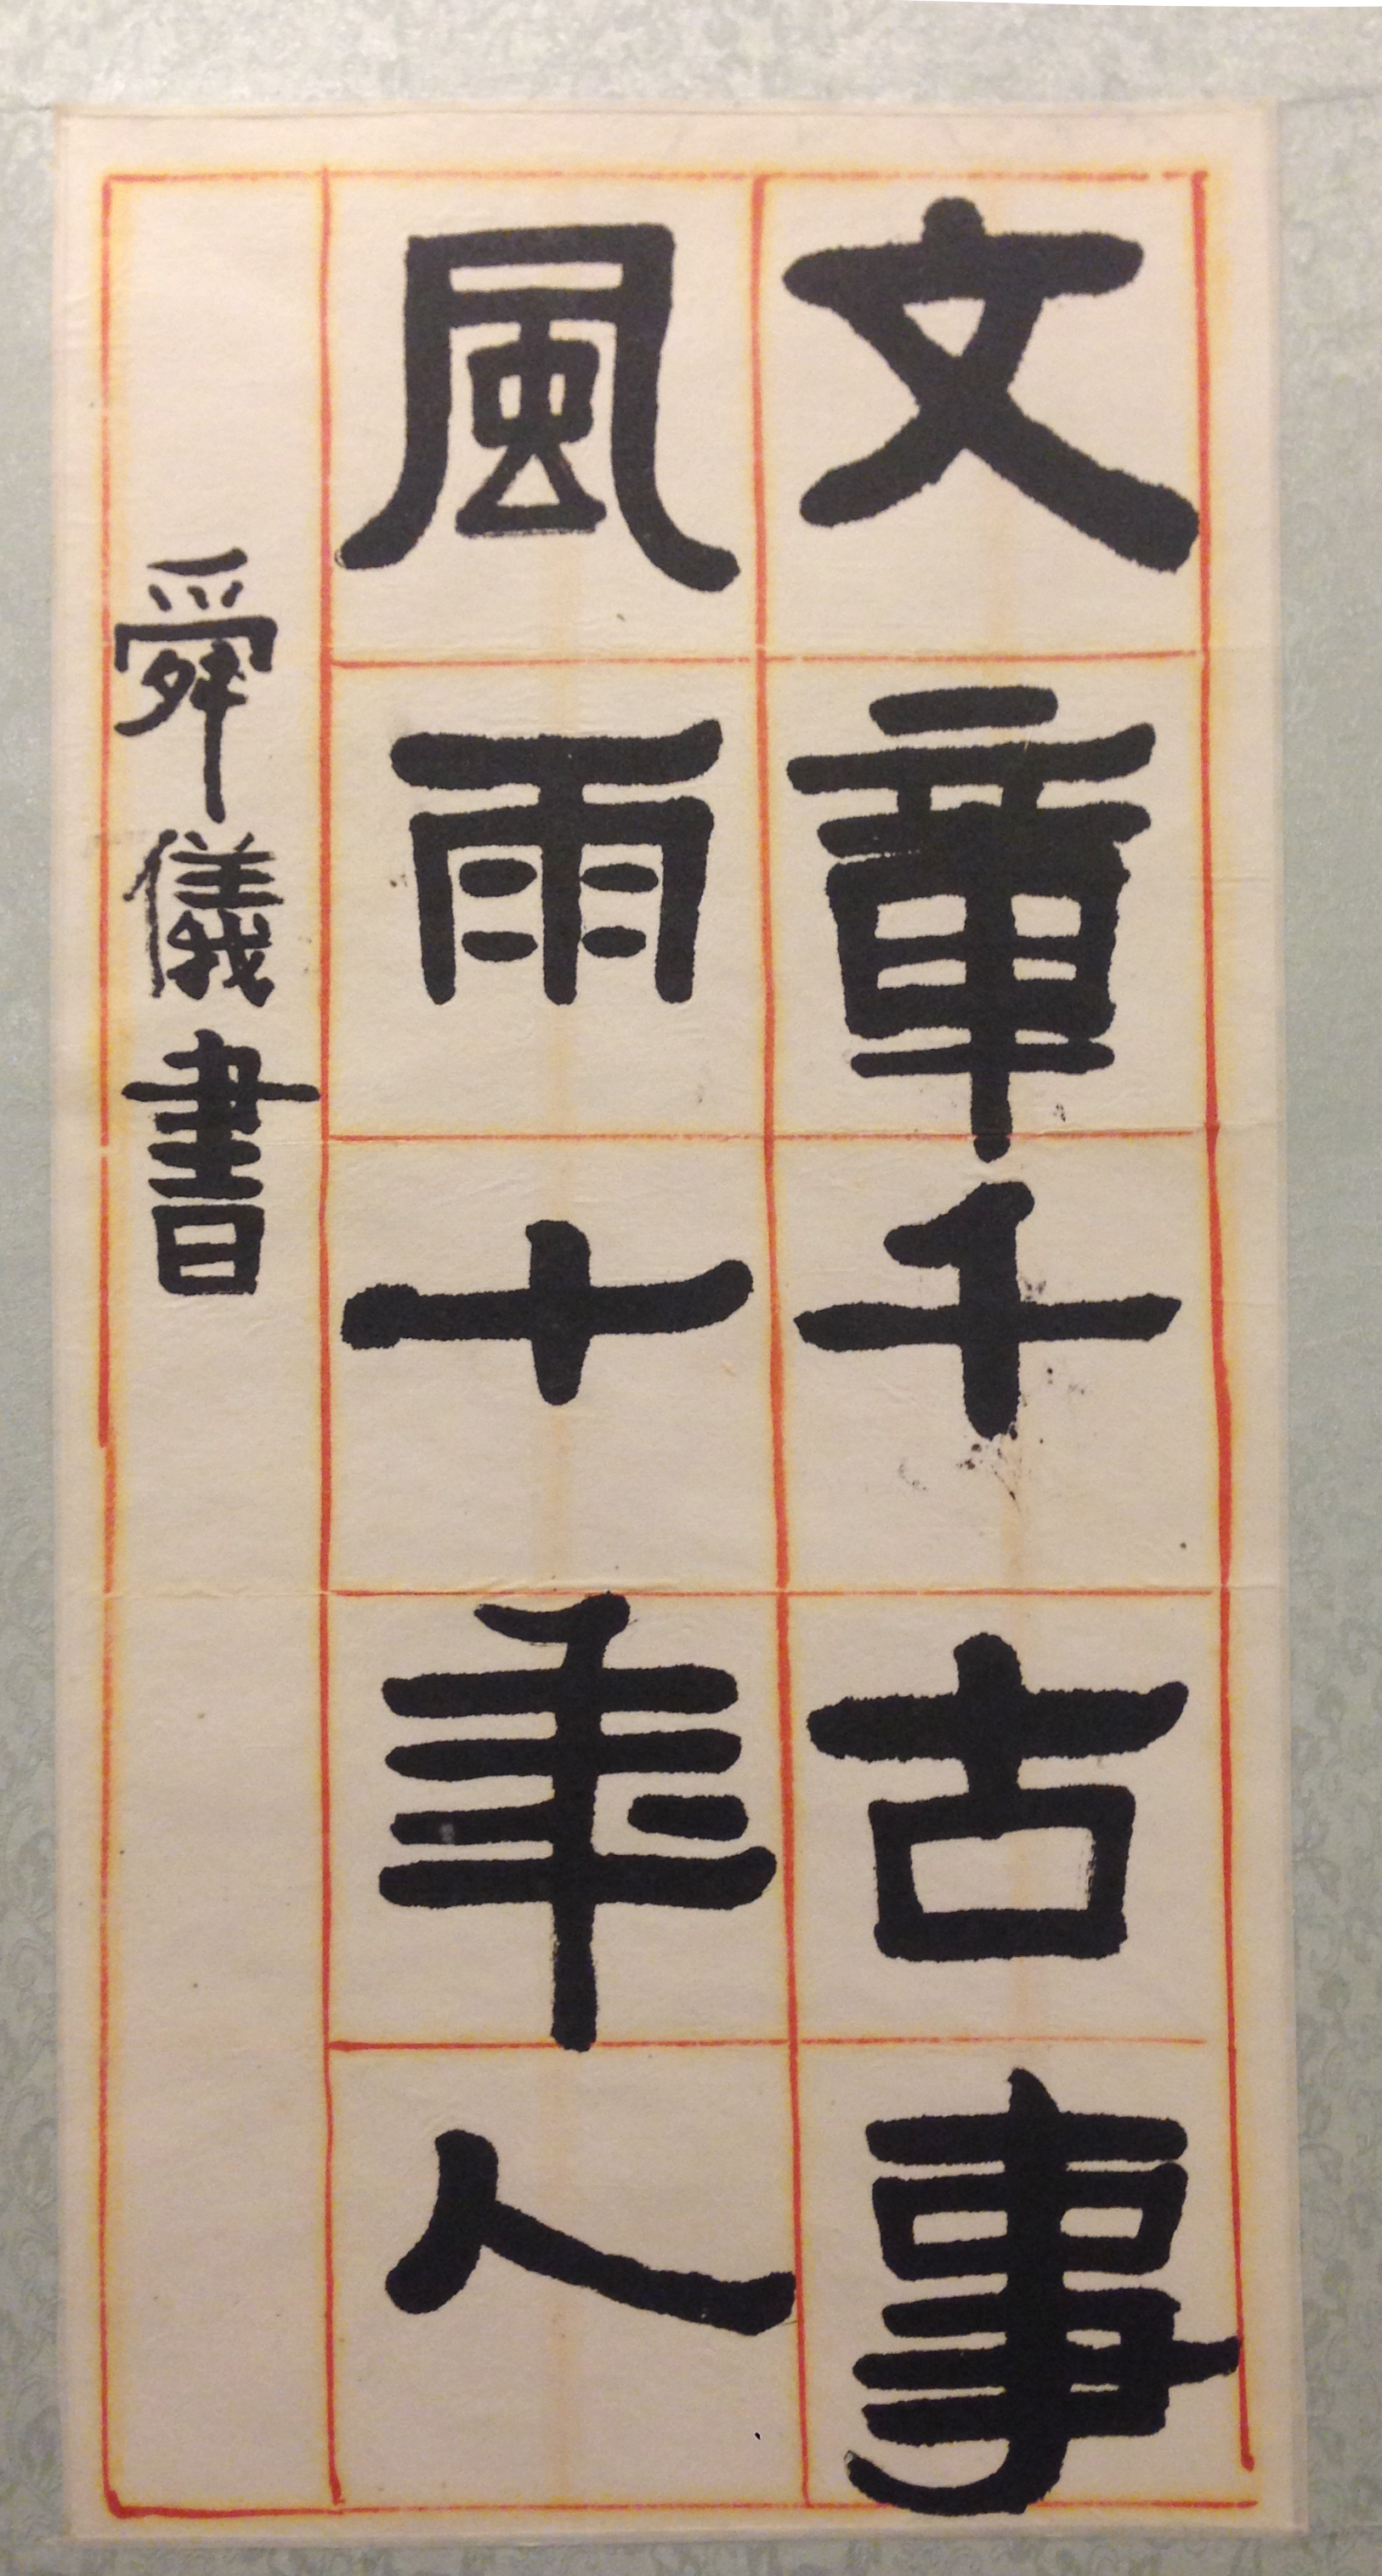 文章千古事
風雨十年人
舜儀書